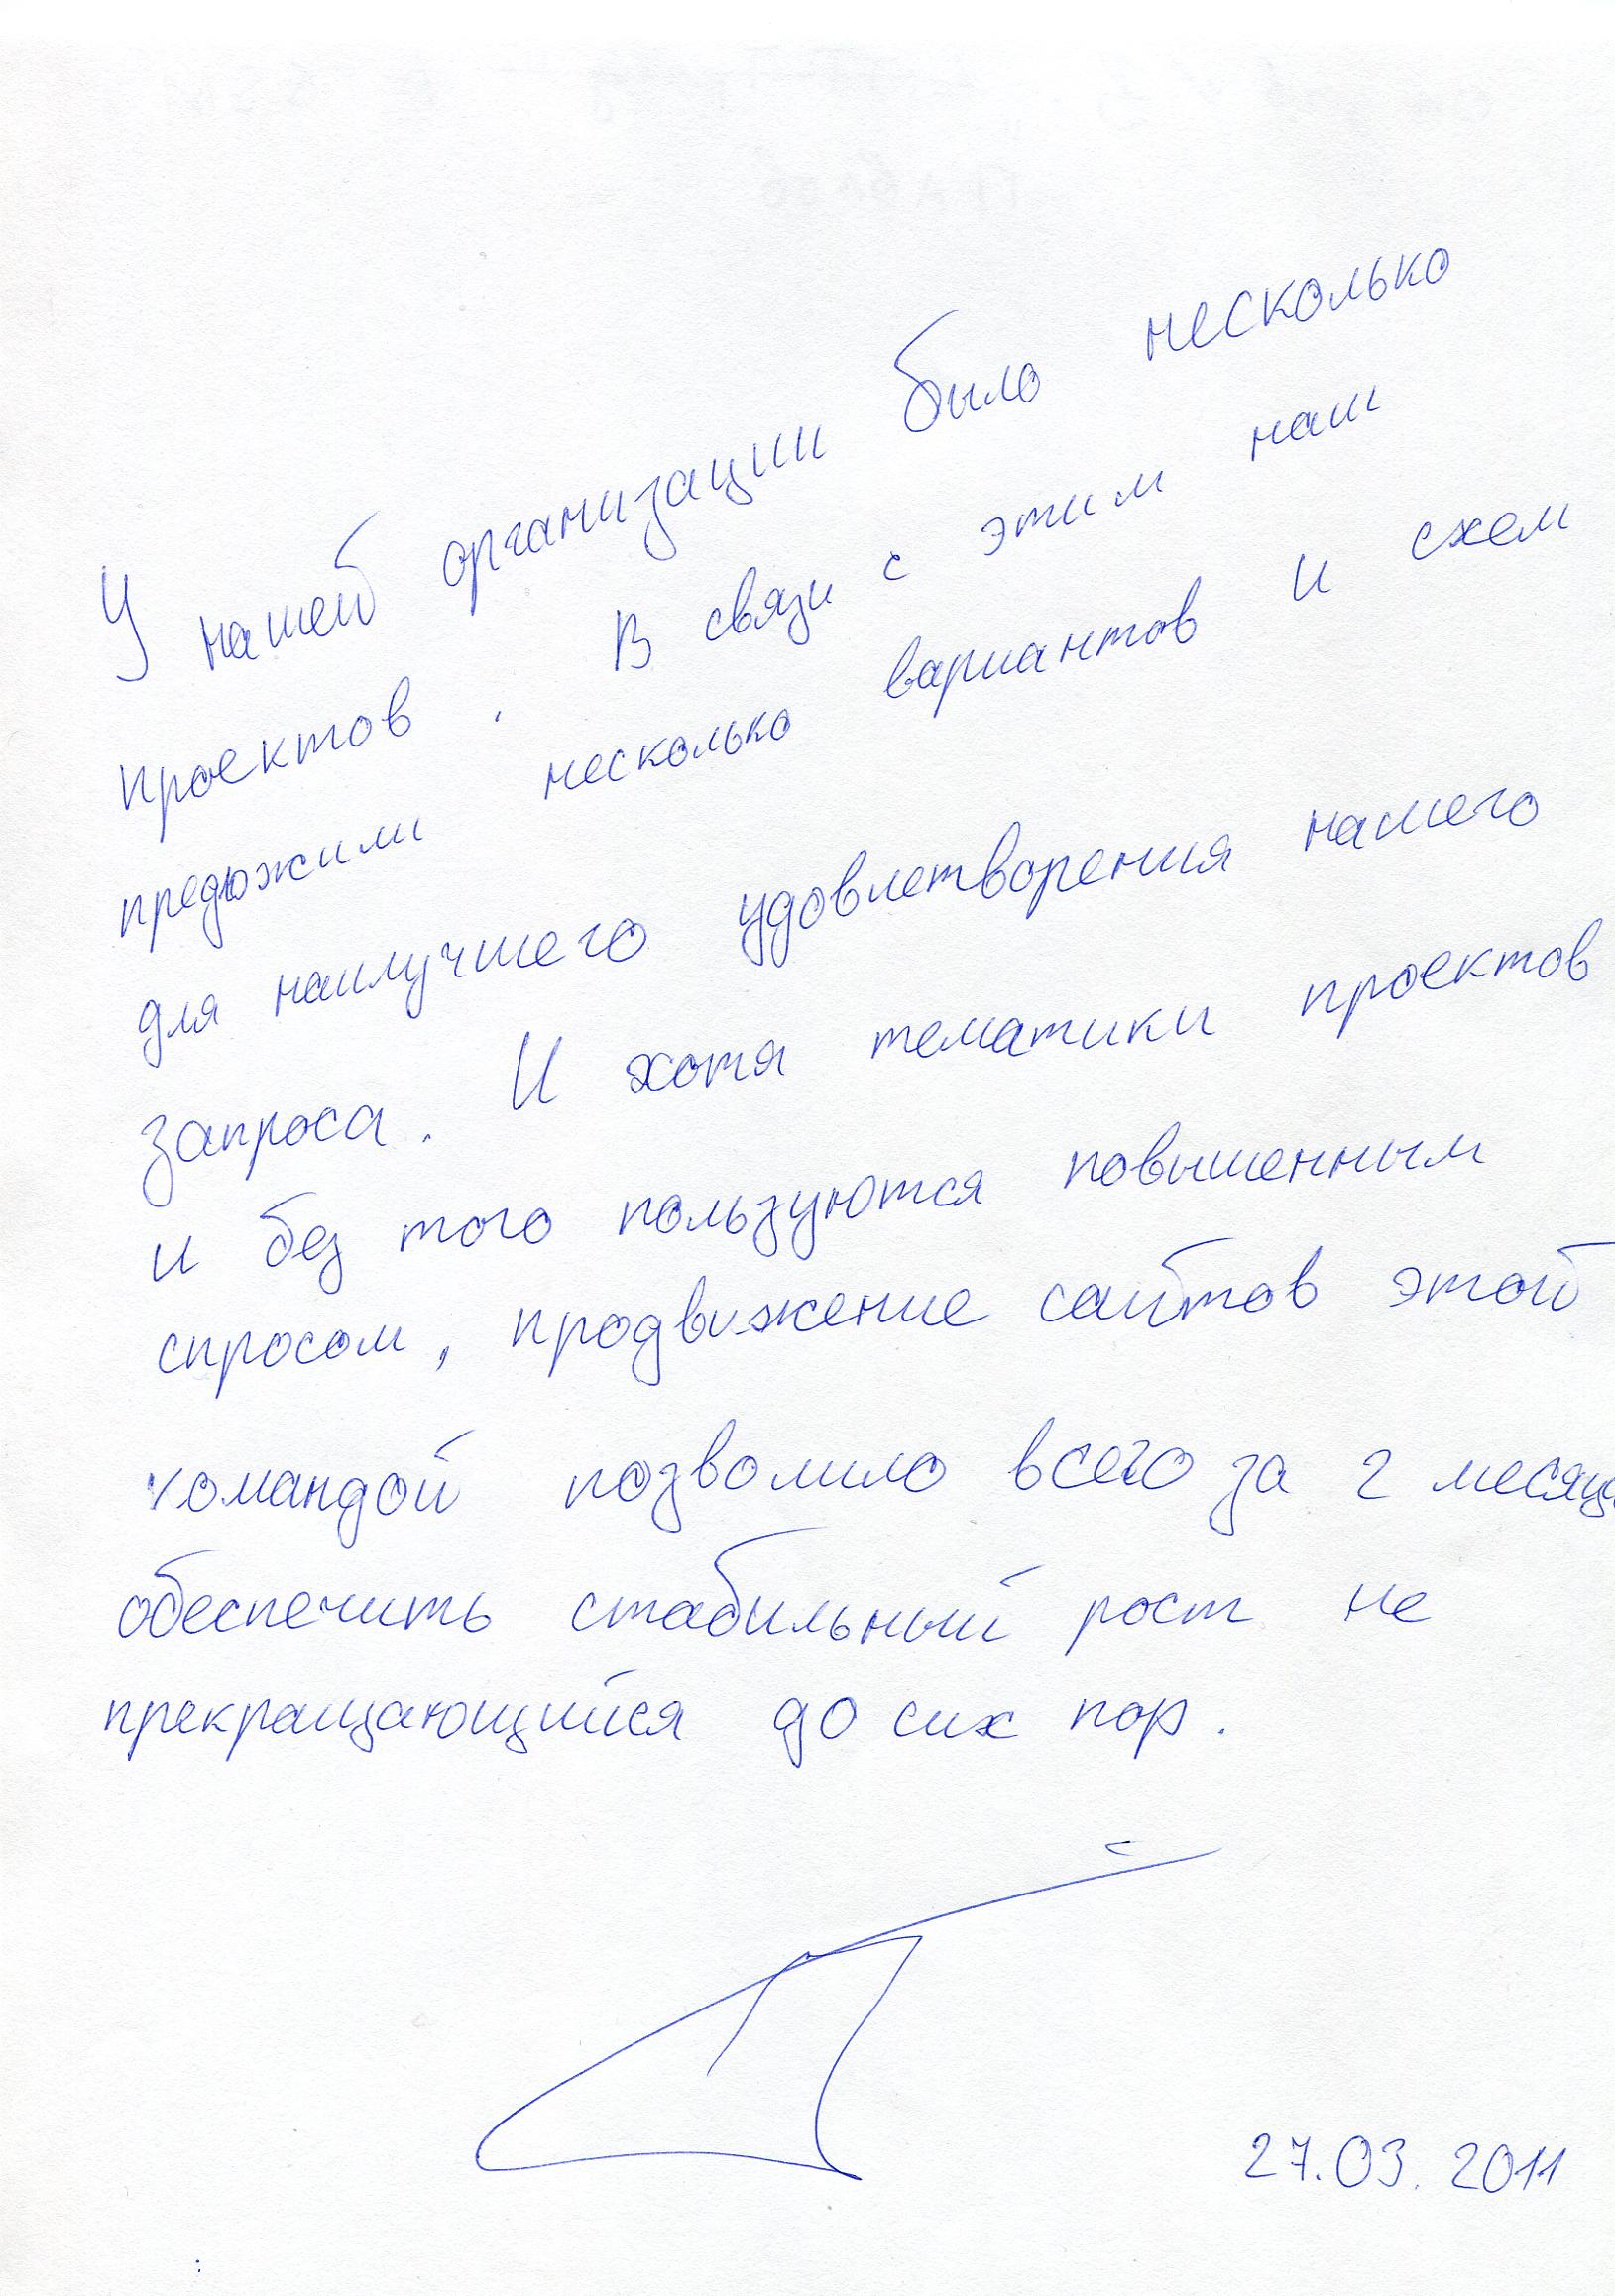 У нашей организации было несколько
проектов. В связи с этим нам
предложили несколько вариантов и схем
для наилучшего удовлетворения нашего
запроса. И хотя тематики проектов
и без того пользуются повышенным
спросом, продвижение сайтов этой
командой позволило всего за 2 месяца
обеспечить стабильный рост не
прекращающийся до сих пор.
27.03.2011